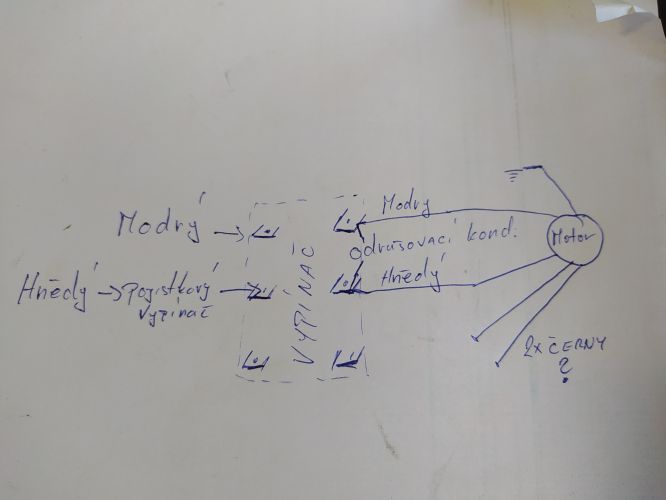 Modrý
Modrý
odrušovací kond.
Motor
Hnědý
Hnědý
pojistkový
vypínač
VYPÍNAČ
2x ČERNÝ
?